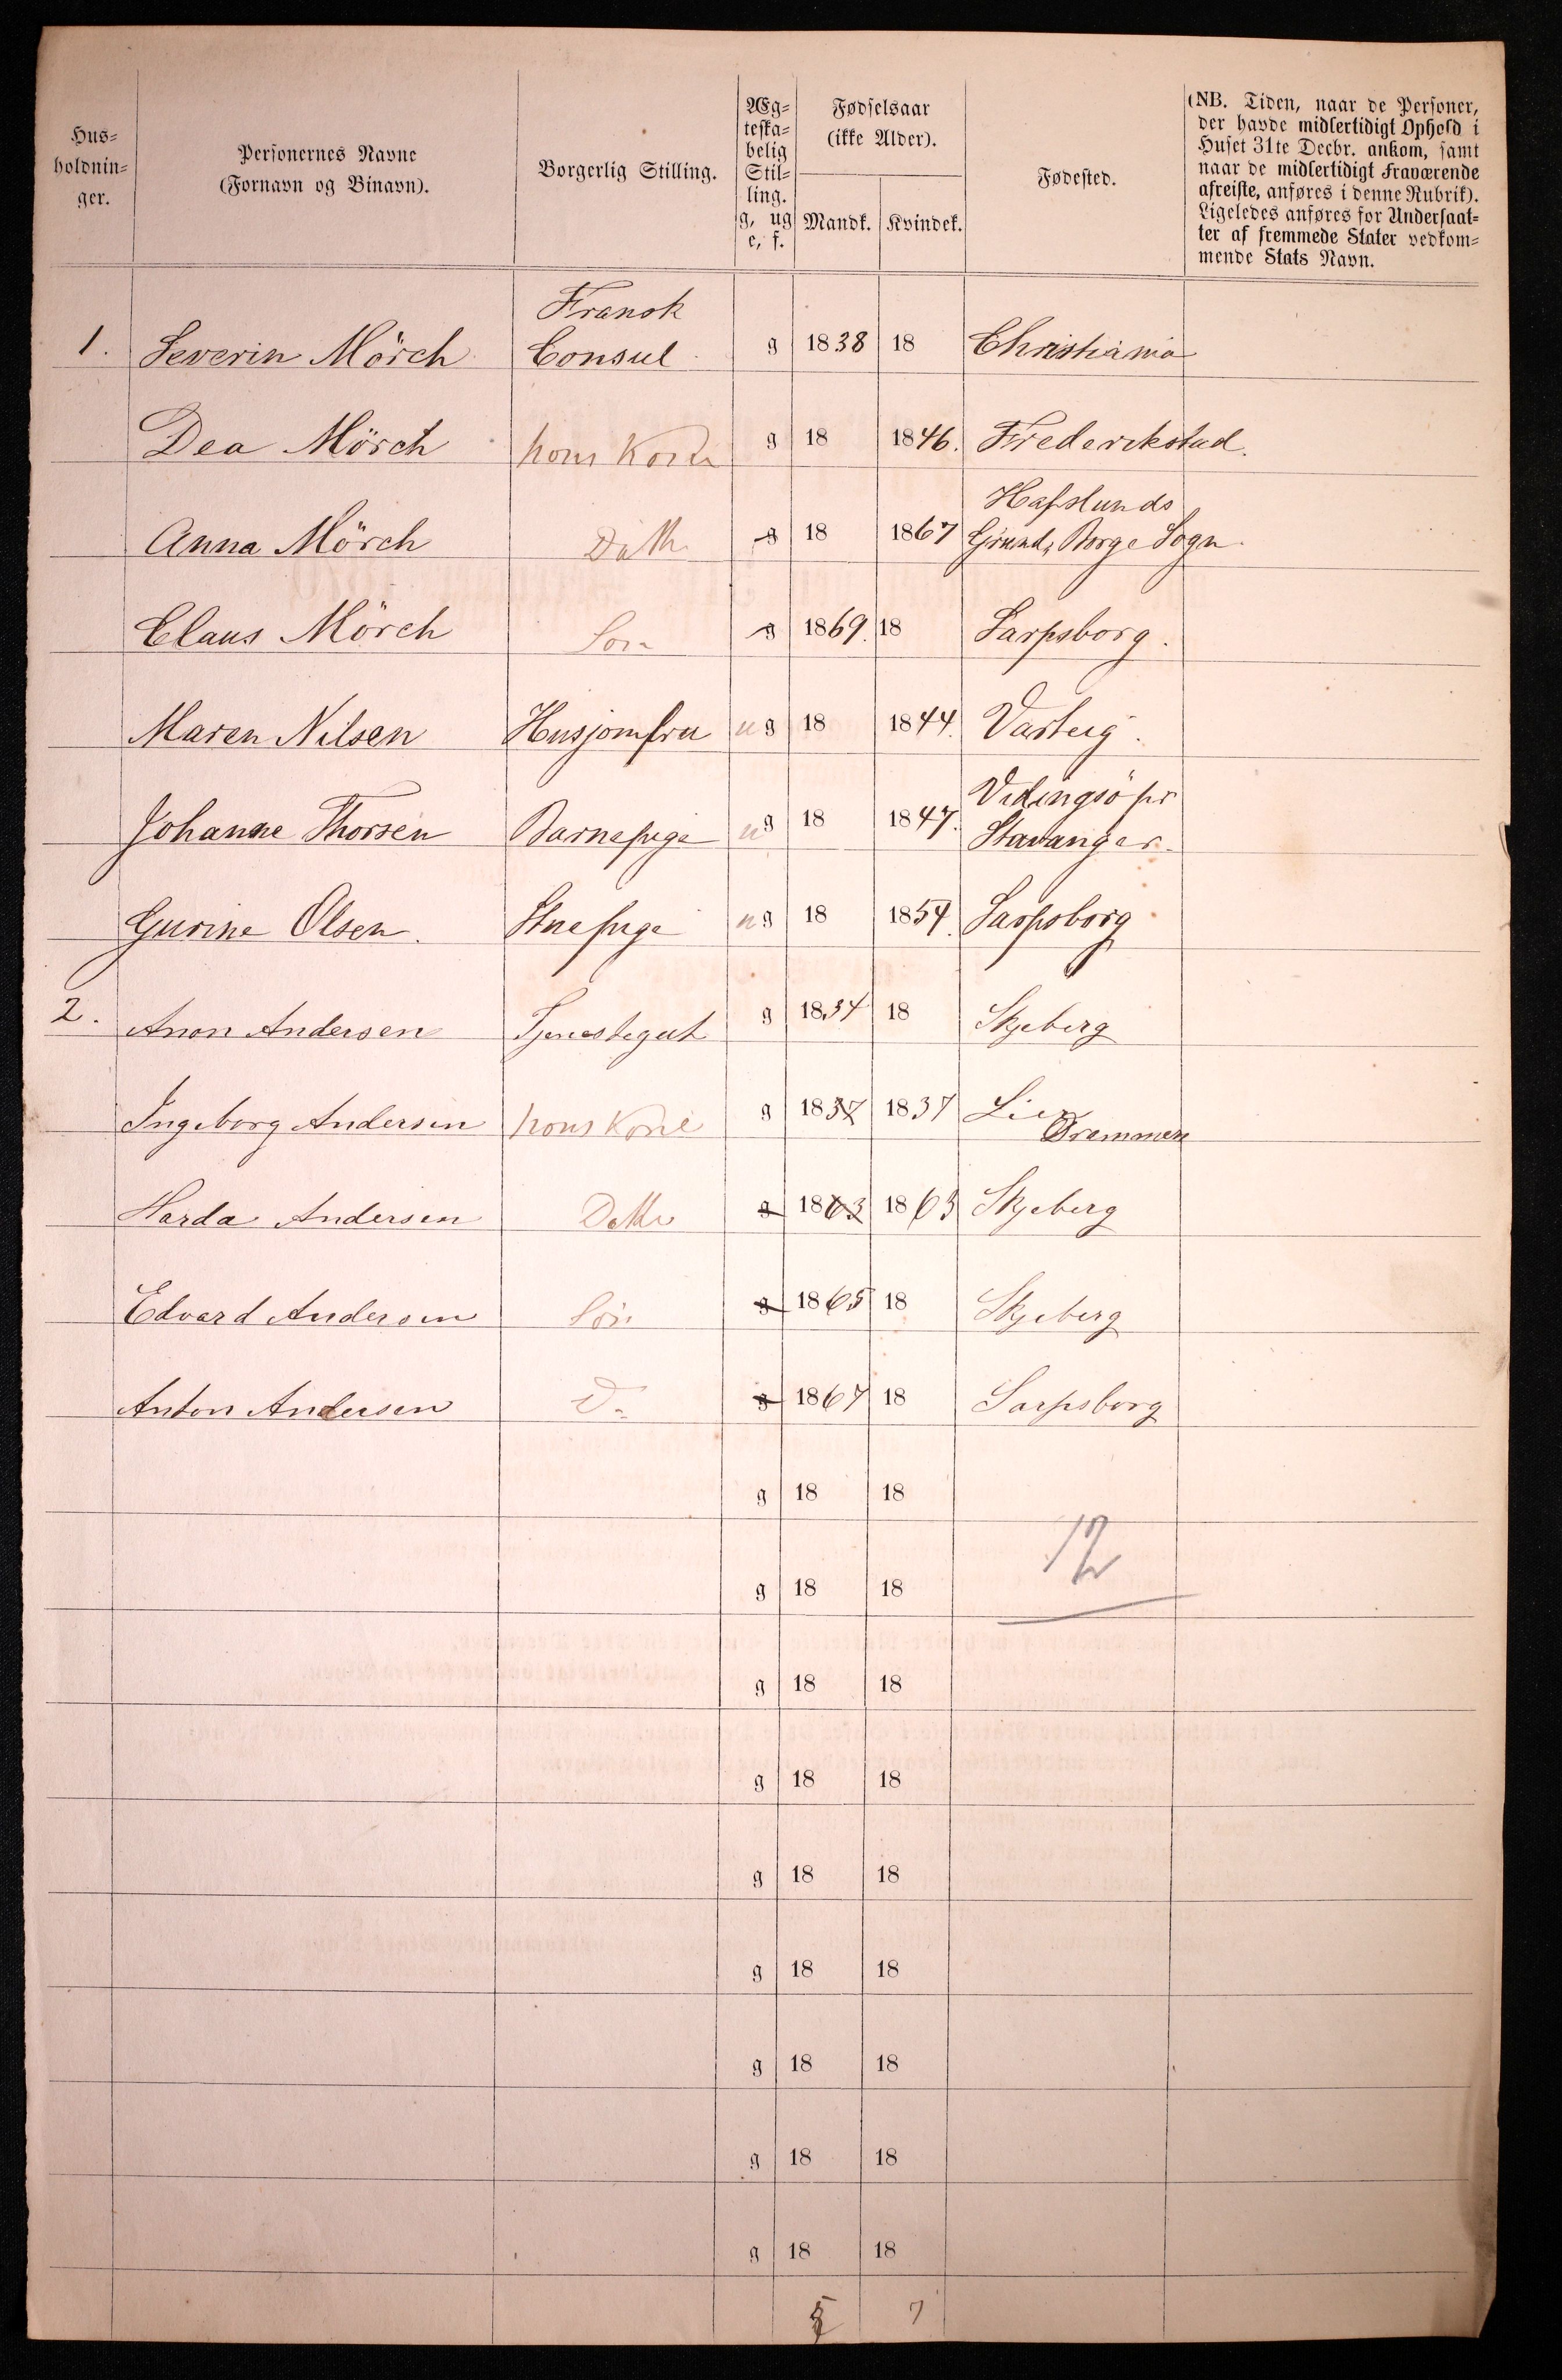 Hus-
holdnin-
ger.
Personernes Navne
(Fornavn og Binavn).
Borgerlig Stilling.
Æg-
teska-
belig
Stil-
ling.
g, ug
e, f.
Fødselsaar
(ikke Alder).
Mandk. Kvindek.
Fødested.
(NB. Tiden, naar de Personer,
der havde midlertidigt Ophold i
Huset 31te Decbr. ankom, samt
naar de midlertidigt Fraværende
afreiste, anføres i denne Rubrik).
Ligeledes anføres for Undersaat-
ter af fremmede Stater vedkom-
mende Stats Navn.
Fransk
1. Severin Mörch Consul g 1838 18 Christiania
Dea Mörch hans Kone g 18 1846. Frederikstad.
Hafslunds
Anna Mörch Datter g 18 1867 Grund, Borge Sogn.
Claus Mörch Søn g 1869. 18 Sarpsborg.
Maren Nilsen Husjomfru ug 18 1844. Varteig.
Johanne Thorsen Barnepige ug 18 1847. Vidingsö pr
Stavanger.
Gurine Olsen. Stuepige ug 18 1854. Sarpsborg
2. Anon Andersen Tjenestegut g 1834 18 Skjeberg
Ingeborg Andersen hans Kone g 1837 1837 Lier
Drammen
Harda Andersen Datter g 1863 1863 Skjeberg
Edvard Andersen Søn g 1865 18 Skjeberg
Anton Andersen D- g 1867 18 Sarpsborg
g 18 18
12
g 18 18
g 18 18
g 18 18
g 18 18
g 18 18
g 18 18
g 18 18
g 18 18
5 7